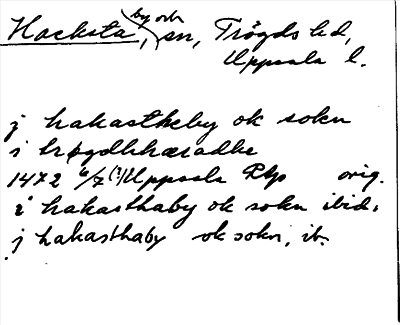 Hacksta, by och sn, Trögds hd,
Uppsala l.
j hakastheby ok sokn
i trøgdhhæradhe
1472 6/7 (?) Uppsala Rhp orig.
i hakasthaby ok sokn ibid.
j hakasthaby ok sokn, ib.